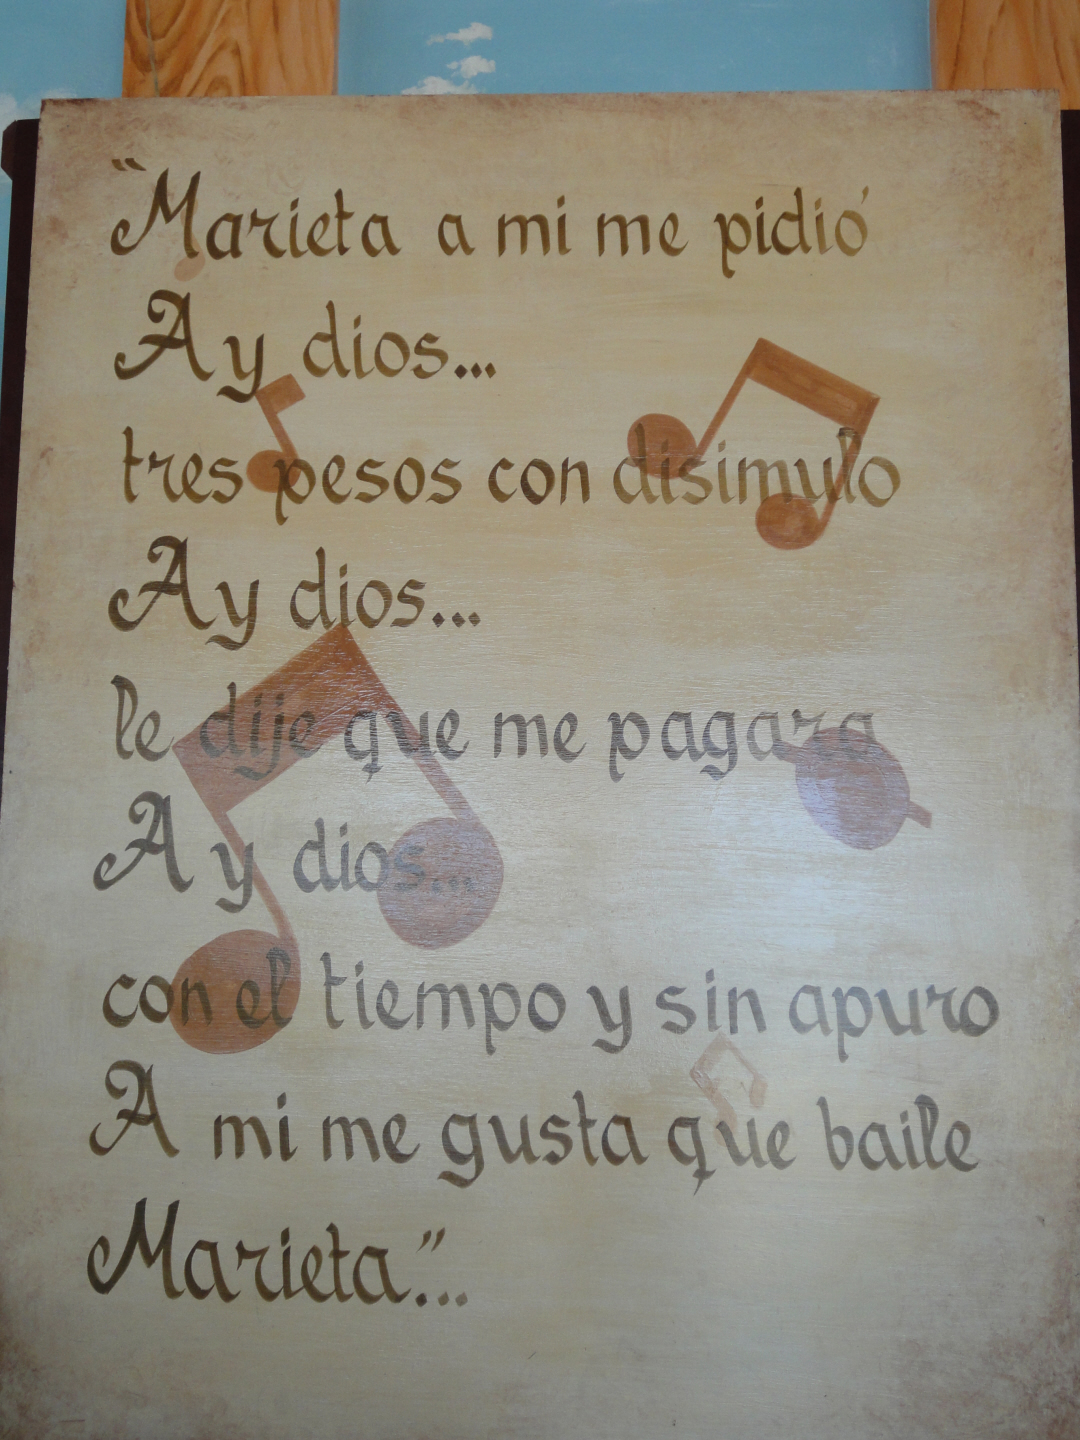 “Marieta a mi me pidió
Ay dios...
tres pesos con disimulo
Ay dios...
le dije que me pagara
Ay dios...
con el tiempo y sin apuro
A mi me gusta que baile
Marieta.”..